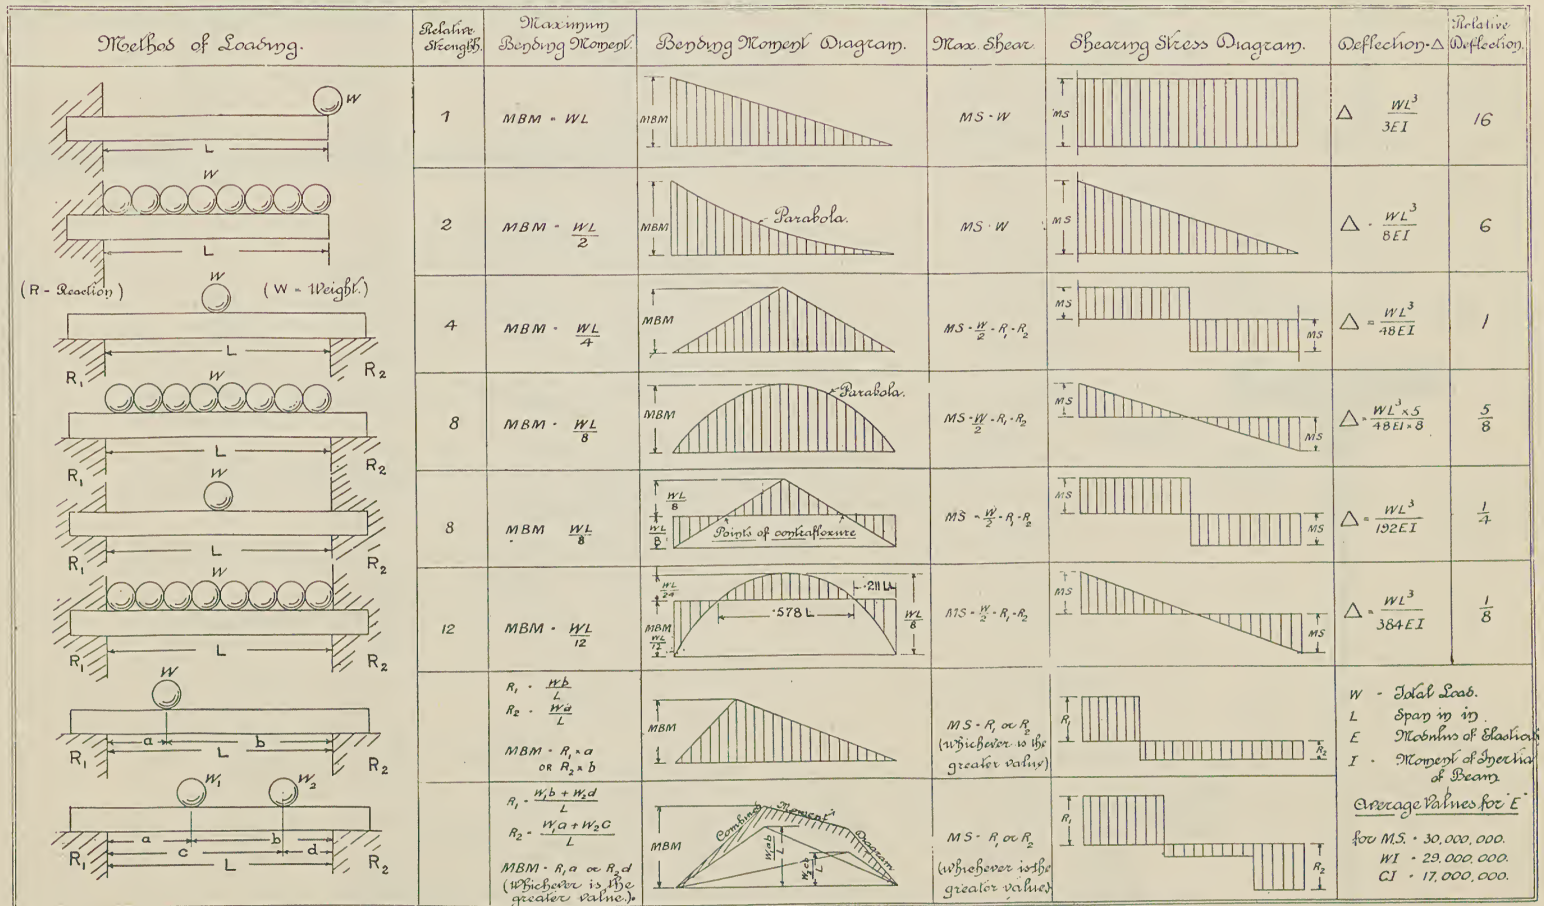 Method of Loading.
Relative Strength.
Maximum Bending Moment.
Bending Moment Diagram.
Max. Shear
Shearing Stress Diagram.
Deflection - Δ
Relative Deflection.
W
L
1
MBM = WL
MBM
MS = W
MS
Δ WL³/3EI
16
W
L
2
MBM = WL/2
MBM
Parabola.
MS = W
MS
Δ = WL³/8EI
6
(R - Reaction)
(W = Weight.)
W
L
R₁
R₂
4
MBM = WL/4
MBM
MS = W/2 = R₁ = R₂
MS
MS
Δ = WL³/48EI
1
W
L
R₁
R₂
8
MBM = WL/8
MBM
Parabola.
MS = W/2 = R₁ = R₂
MS
MS
Δ = WL³ × 5/48EI × 8
5/8
W
L
R₁
R₂
8
MBM WL/8
WL/8
WL/8
Points of contraflexure
MS = W/2 = R₁ = R₂
MS
MS
Δ = WL³/192EI
1/4
W
L
R₁
R₂
12
MBM = WL/12
WL/24
MBM
WL/12
·578 L
·211 L
WL/8
MS = W/2 = R₁ = R₂
MS
MS
Δ = WL³/384EI
1/8
W
a
b
L
R₁
R₂
R₁ = Wb/L
R₂ = Wa/L
MBM = R₁ × a
OR R₂ × b
MBM
MS = R₁ or R₂
(whichever is the
greater value)
R₁
R₂
W - Total Load.
L Span in in.
E Modulus of Elasticity
I - Moment of Inertia
of Beam
Average Values for "E"
for M.S. = 30,000,000.
WI = 29,000,000.
CI = 17,000,000.
W₁
W₂
a
b
c
d
L
R₁
R₂
R₁ = W₁b + W₂d/L
R₂ = W₁a + W₂c/L
MBM = R₁a or R₂d
(whichever is the
greater value.)
MBM
Combined Moment Diagram
W₁ab/L
MS = R₁ or R₂
(whichever is the
greater value)
R₁
R₂